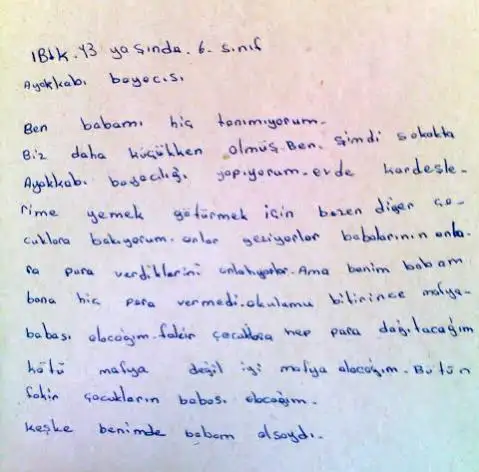 IBtk. 13 yaşında. 6. sınıf
Ayakkabı boyacısı
Ben babamı hiç tanımıyorum.
Biz daha küçükken olmüş. Ben, şimdi sokakta
Ayakkabı boyacılığı yapıyorum. evde kardeşle-
rime yemek götürmek için bazen diğer ço-
cuklara bakıyorum. onlar geziyorlar babalarının onla-
ra para verdiklerini anlatıyorlar. Ama benim babam
bana hiç para vermedi. okulumu bitirince mafya-
babası olacağım. fakir çocuklara hep para dağıtacağım
kötü mafya değil iyi mafya olacağım. Bütün
fakir çocukların babası olacağım.
keşke benimde babam olsaydı.